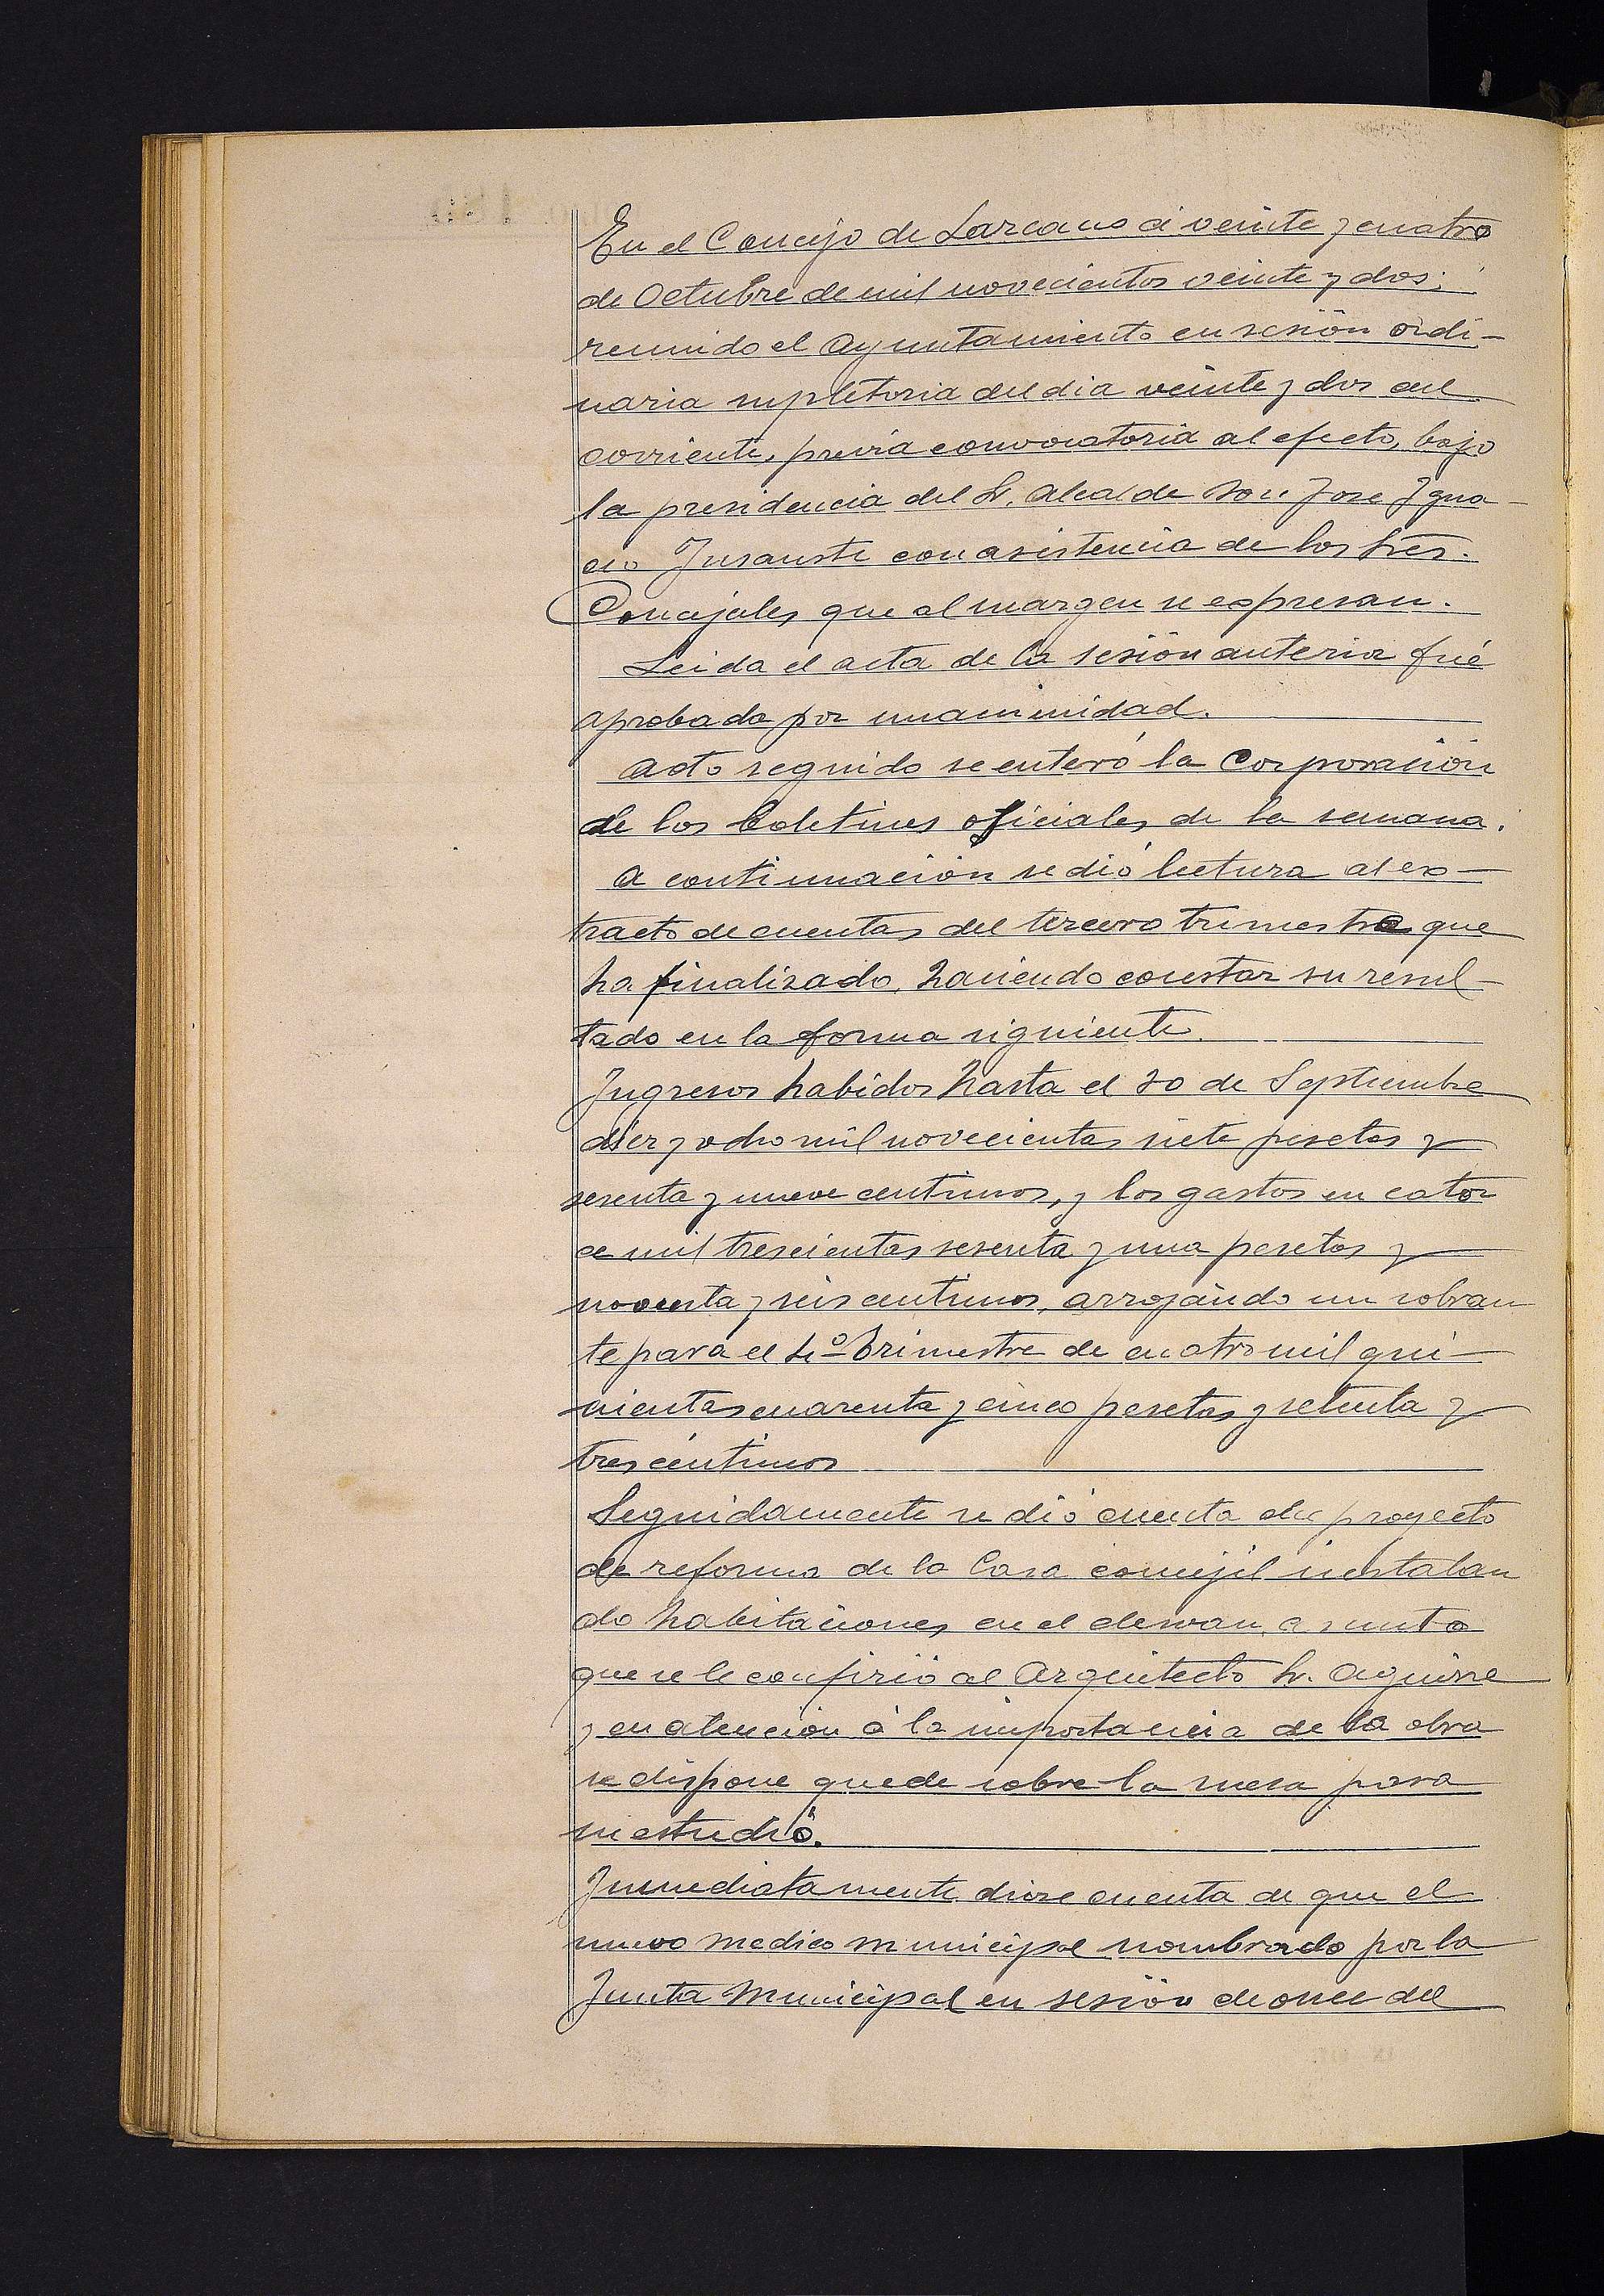 En el Concejo de Lazcano á veinte y cuatro
de Octubre de mil novecientos veinte y dos;
reunido el Ayuntamiento en sesión ordi-
naria supletoria del dia veinte y dos del
corriente, previa convocatoria al efecto, bajo
la presidencia del Sr. Alcalde Don Jose Igna-
cio Insausti con asistencia de los Sres.
Concejales que al margen se expresan.
Leida el acta de la sesión anterior fué
aprobada por unanimidad.
Acto seguido se enteró la Corporación
de los Boletines oficiales de la semana.
A continuación se dió lectura al ex-
tracto de cuentas del tercero trimestre que
ha finalizado, haciendo constar su resul-
tado en la forma siguiente.
Ingresos habidos hasta el 30 de Septiembre
diez y ocho mil novecientas siete pesetas y
sesenta y nueve centimos, y los gastos en cator
ce mil trescientas sesenta y una pesetas y
noventa y seis centimos, arrojando un sobran
te para el 4º Trimestre de cuatro mil qui-
nientas cuarenta y cinco pesetas y setenta y
tres céntimos
Seguidamente se dió cuenta del proyecto
de reforma de la Casa concejil instalan
do habitaciones en el desvan, asunto
que se le confirió al Arquitecto Sr. Aguirre
y en atención á la importancia de la obra
se dispone quede sobre la mesa para
su estudio.
Inmediatamente diose cuenta de que el
nuevo medico municipal nombrado por la
Junta Municipal en sesión de once del